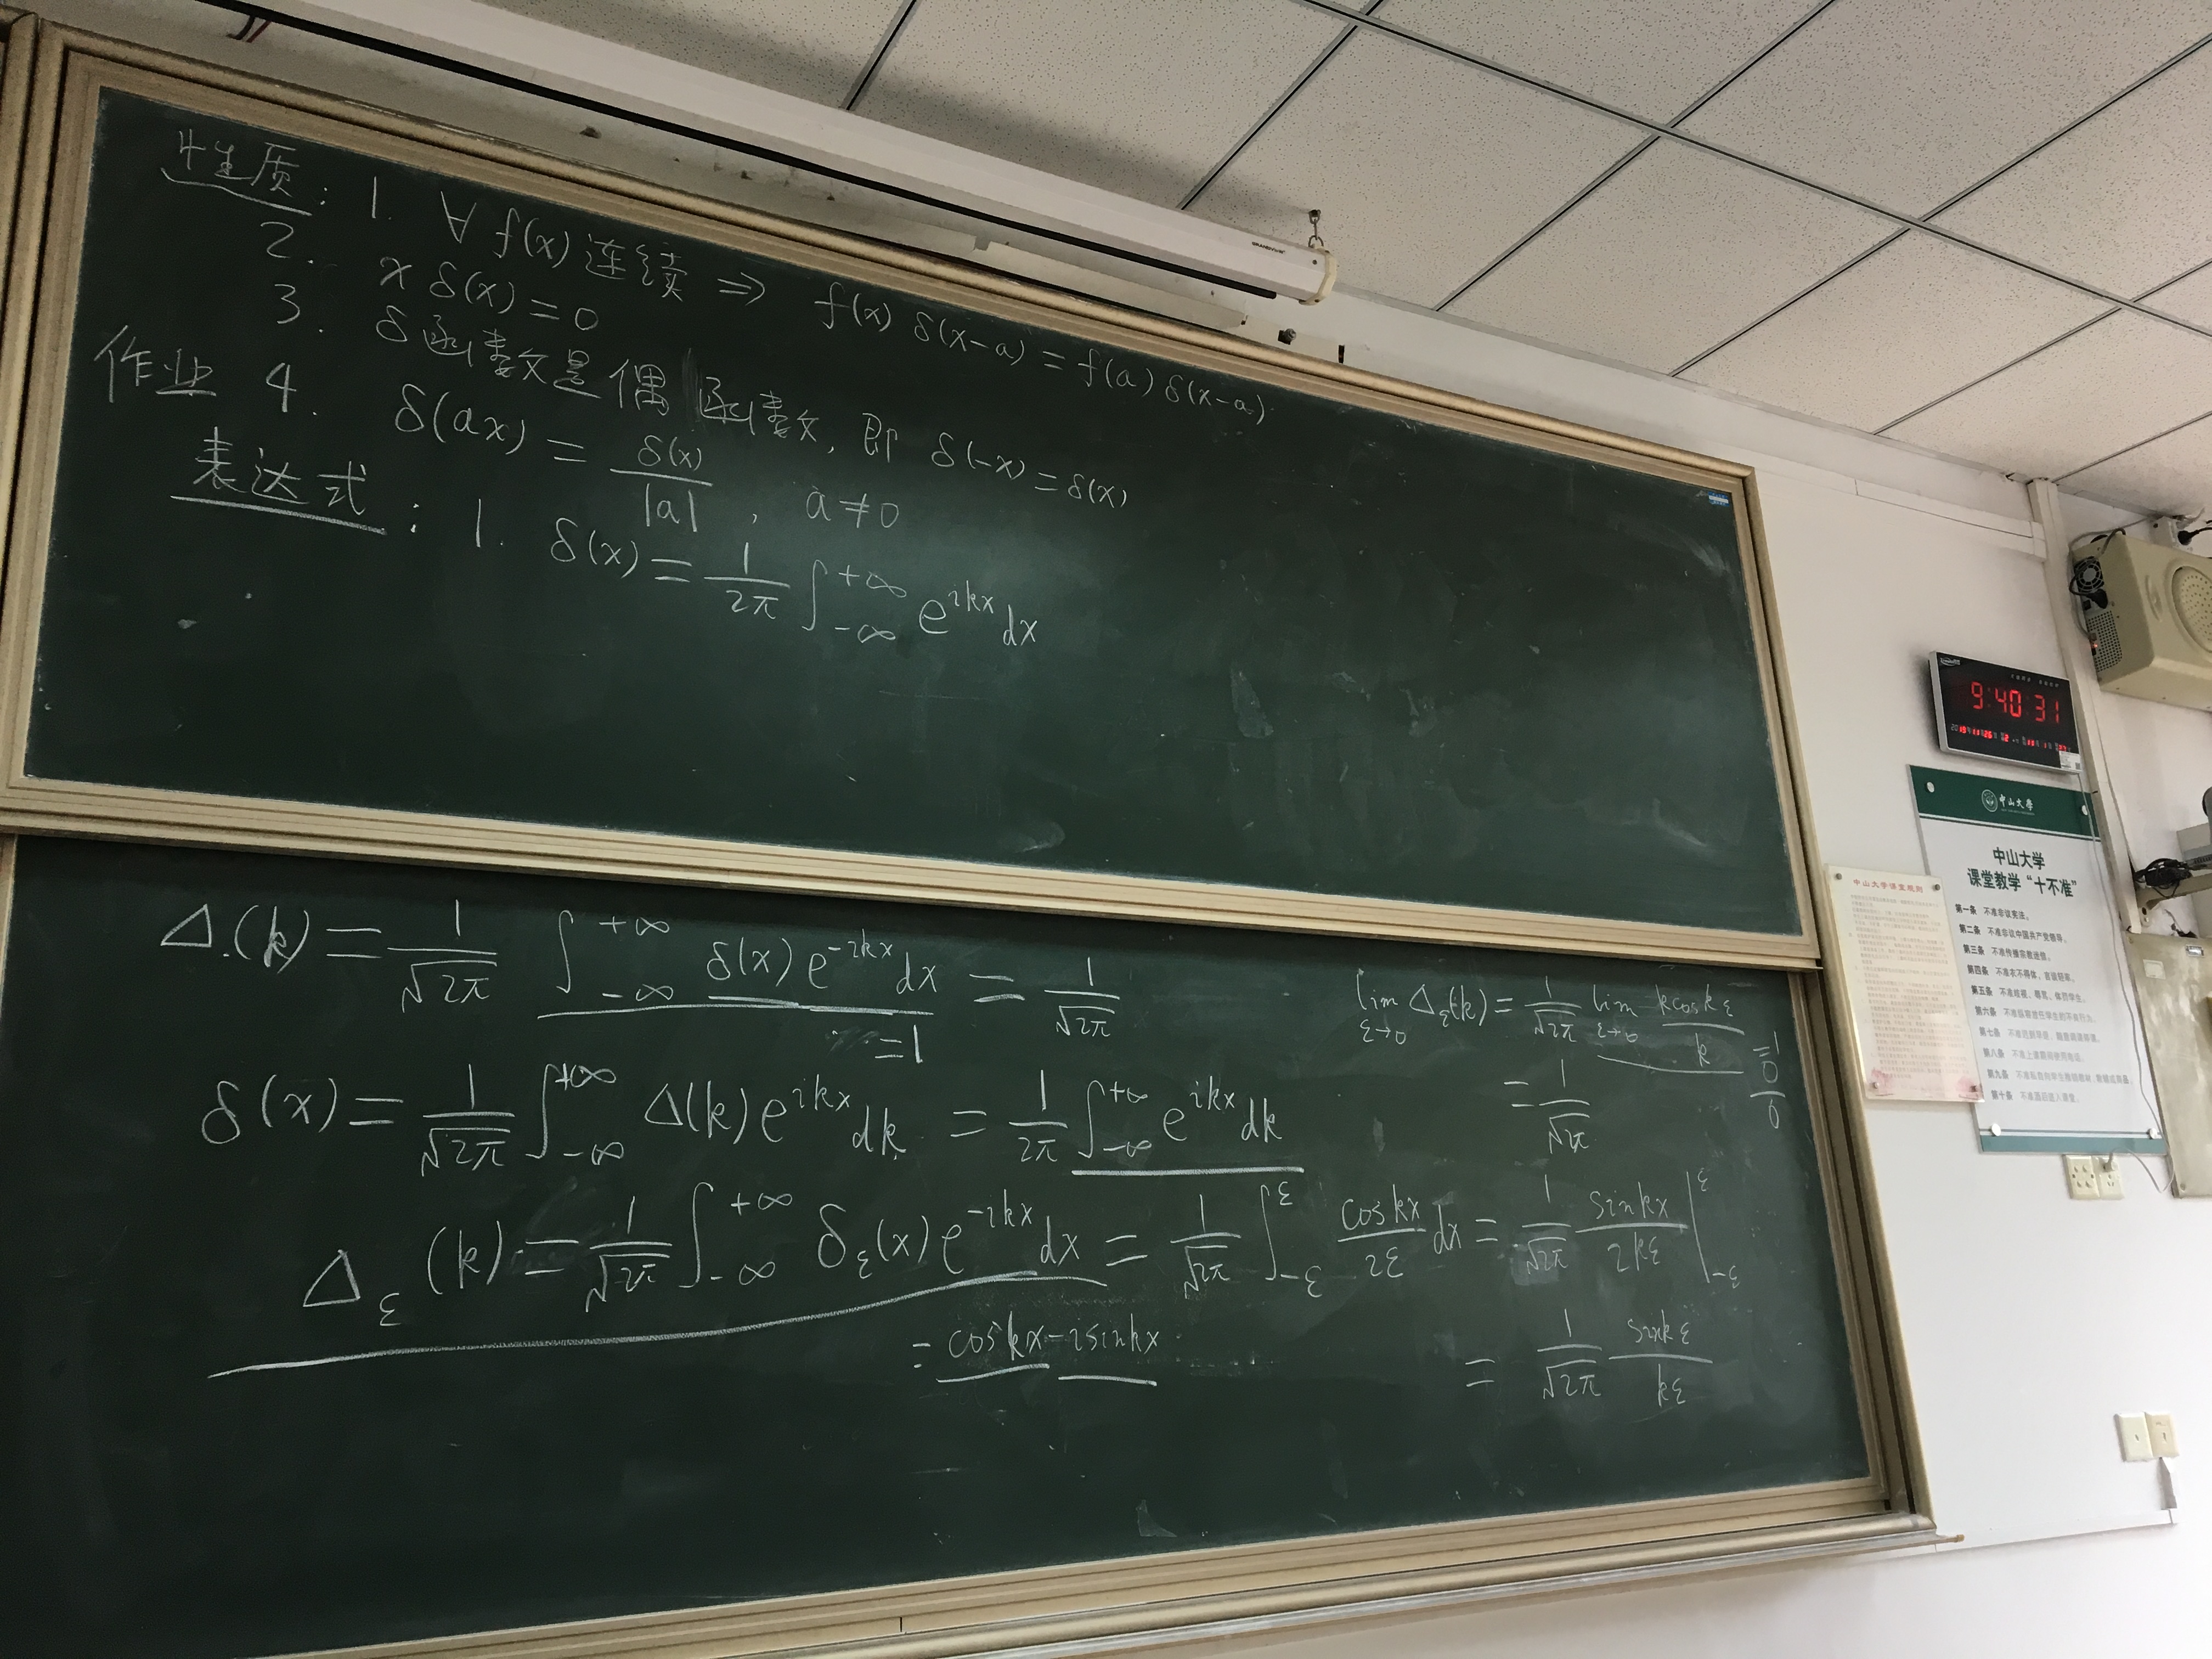 性质: 1. ∀ f(x) 连续 ⇒ f(x) δ(x-a) = f(a) δ(x-a).
2. x δ(x) = 0
3. δ函数是偶函数, 即 δ(-x) = δ(x)
作业 4. δ(ax) = \frac{δ(x)}{|a|}, a ≠ 0
表达式: 1. δ(x) = \frac{1}{2π} ∫_{-∞}^{+∞} e^{ikx} dx
Δ(k) = \frac{1}{\sqrt{2π}} ∫_{-∞}^{+∞} δ(x) e^{-ikx} dx = \frac{1}{\sqrt{2π}}
=1
δ(x) = \frac{1}{\sqrt{2π}} ∫_{-∞}^{+∞} Δ(k) e^{ikx} dk = \frac{1}{2π} ∫_{-∞}^{+∞} e^{ikx} dk
Δ_ε(k) = \frac{1}{\sqrt{2π}} ∫_{-∞}^{+∞} δ_ε(x) e^{-ikx} dx = \frac{1}{\sqrt{2π}} ∫_{-ε}^{ε} \frac{cos kx}{2ε} dx = \frac{1}{\sqrt{2π}} \frac{sin kx}{2kε} |_{-ε}^{ε}
= cos kx - i sin kx
= \frac{1}{\sqrt{2π}} \frac{sin kε}{kε}
lim_{ε→0} Δ_ε(k) = \frac{1}{\sqrt{2π}} lim_{ε→0} \frac{k cos kε}{k}
=1
\frac{0}{0}
= \frac{1}{\sqrt{2π}}
GRANDVIEW
9:40:31
中山大学
中山大学
课堂教学“十不准”
第一条 不准非议宪法。
第二条 不准非议中国共产党领导。
第三条 不准传播宗教迷信。
第四条 不准衣不得体，言谈轻率。
第五条 不准歧视、辱骂、体罚学生。
第六条
第七条
第八条 不准上课期间使用电话。
第九条
第十条 不准酒后进入课堂。
中山大学课堂规则